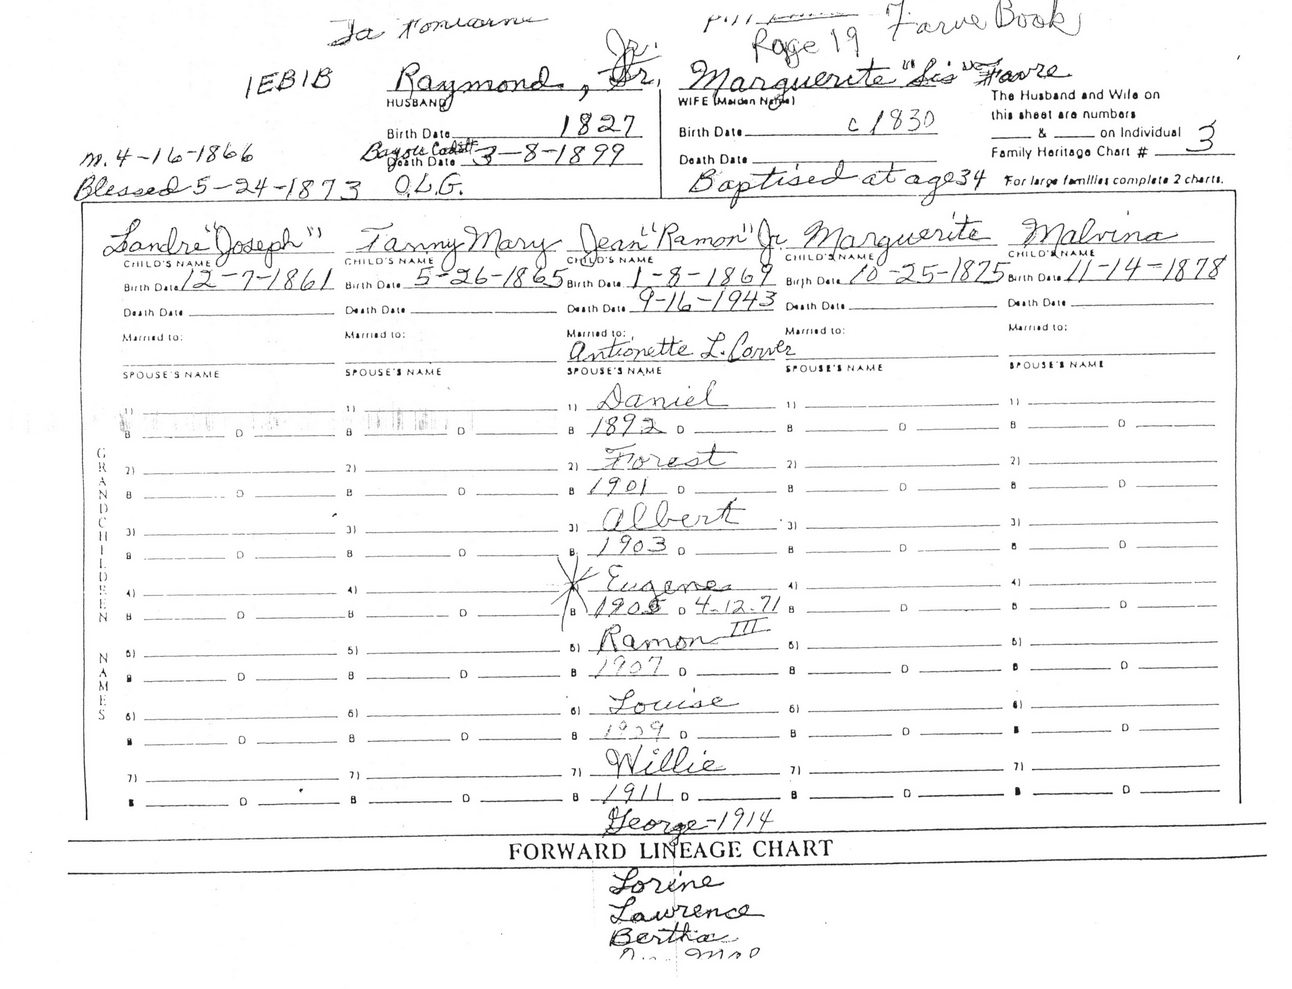 Farve Book
Page 19
1EB1B
Raymond, Sr. Jr.
HUSBAND
Birth Date 1827
Bayou Cadet
Death Date 3-8-1899
O.L.G.
m. 4-16-1866
Blessed 5-24-1873
Marguerite "Sis" Favre
WIFE (Maiden Name)
Birth Date c 1830
Death Date
Baptised at age 34
The Husband and Wife on
this sheet are numbers
& on Individual
Family Heritage Chart # 3
For large families complete 2 charts.
Landre "Joseph" Fanny Mary Jean "Ramon" Jr Marguerite Malvina
CHILD'S NAME CHILD'S NAME CHILD'S NAME CHILD'S NAME CHILD'S NAME
Birth Date 12-7-1861 Birth Date 5-26-1865 Birth Date 1-8-1869 Birth Date 10-25-1875 Birth Date 11-14-1878
Death Date Death Date Death Date 9-16-1943 Death Date Death Date
Married to: Married to: Married to: Married to: Married to:
Antionette L.
SPOUSE'S NAME SPOUSE'S NAME SPOUSE'S NAME SPOUSE'S NAME SPOUSE'S NAME
GRANDCHILDREN NAMES
1) 1) 1) Daniel 1) 1)
B D B D B 1892 D B D B D
2) 2) 2) Forest 2) 2)
B D B D B 1901 D B D B D
3) 3) 3) Albert 3) 3)
B D B D B 1903 D B D B D
4) 4) 4) Eugene 4) 4)
B D B D B 1905 D 4-12-71 B D B D
5) 5) 5) Ramon III 5) 5)
B D B D B 1907 D B D B D
6) 6) 6) Louise 6) 6)
B D B D B 1909 D B D B D
7) 7) 7) Willie 7) 7)
B D B D B 1911 D B D B D
George-1914
FORWARD LINEAGE CHART
Lorine
Lawrence
Bertha